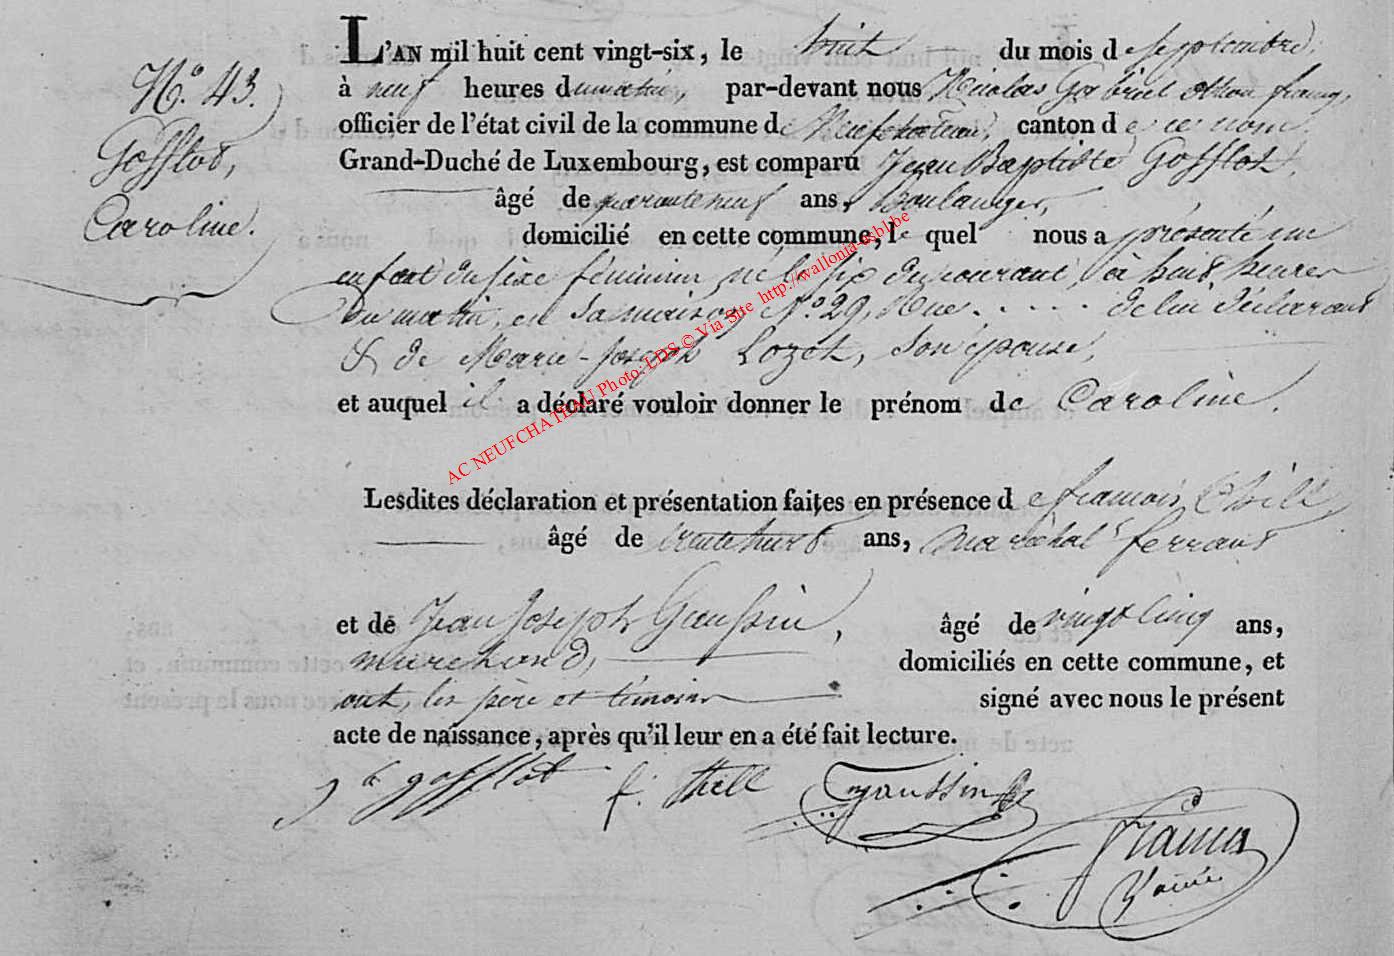 N.° 43.
Gofflot,
Caroline.
L'AN mil huit cent vingt-six, le huit du mois de septembre,
à neuf heures du matin, par-devant nous Nicolas Gabriel
officier de l'état civil de la commune de Neufchateau, canton de ce nom.
Grand-Duché de Luxembourg, est comparu Jean Baptiste Gofflot,
âgé de quarante neuf ans, Boulanger,
domicilié en cette commune, le quel nous a présenté un
enfant du sexe féminin né le six du courant, à huit heures
du matin, en sa maison N.° 29, Rue . . . . de lui déclarant
& de Marie-Joseph Lozet, son épouse
et auquel il a déclaré vouloir donner le prénom de Caroline.
Lesdites déclaration et présentation faites en présence de françois Thill,
âgé de trente huit ans, maréchal ferrant
et de Jean Joseph Gaussin, âgé de vingt cinq ans,
marchand, domiciliés en cette commune, et
ont, les père et témoins signé avec nous le présent
acte de naissance, après qu'il leur en a été fait lecture.
gofflot f. thill Gaussin
l'ainé
AC NEUFCHATEAU Photo: LDS © Via Site http://wallonia-asbl.be